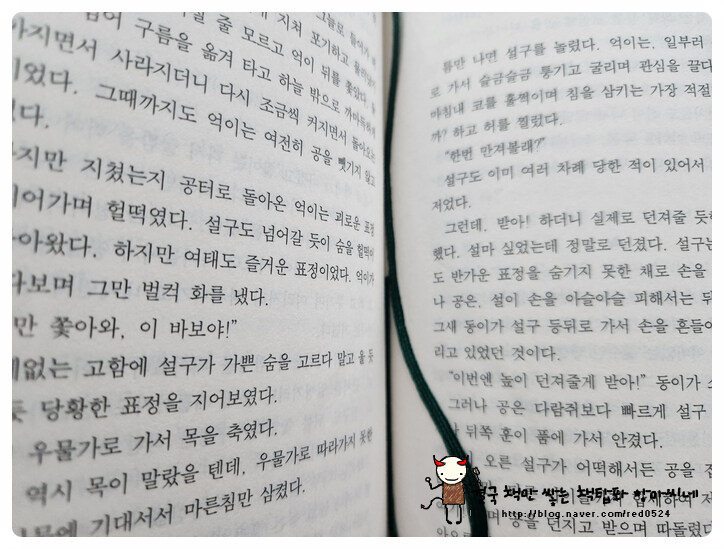 구름을 옮겨 타고 하늘 밖으로
사라지더니 다시 조금씩 커지면서
그때까지도 억이는 여전히 공을 뺏기지 않고
지쳤는지 공터로 돌아온 억이는 괴로운 표정
헐떡였다. 설구도 넘어갈 듯이 숨을
하지만 여태도 즐거운 표정이었다. 억이가
그만 벌컥 화를 냈다.
쫓아와, 이 바보야!"
고함에 설구가 가쁜 숨을 고르다 말고 울 듯
당황한 표정을 지어보였다.
우물가로 가서 목을 축였다.
역시 목이 말랐을 텐데, 우물가로 따라가지 못한
기대서서 마른침만 삼켰다.
틈만 나면 설구를 놀렸다. 억이는, 일부러
로 가서 슬금슬금 퉁기고 굴리며 관심을 끌다
마침내 코를 훌쩍이며 침을 삼키는 가장 적절
까? 하고 허를 찔렀다.
"한번 만져볼래?"
설구도 이미 여러 차례 당한 적이 있어서
저었다.
그런데, 받아! 하더니 실제로 던져줄 듯
했다. 설마 싶었는데 정말로 던졌다. 설구는
도 반가운 표정을 숨기지 못한 채로 손을
나 공은, 설이 손을 아슬아슬 피해서는
그새 동이가 설구 등뒤로 가서 손을 흔들
리고 있었던 것이다.
"이번엔 높이 던져줄게 받아!" 동이가
그러나 공은 다람쥐보다 빠르게 설구
뒤쪽 훈이 품에 가서 안겼다.
오른 설구가 어떡해서든 공을
던지고 받으며
책만 쌓는 책탑파
http://blog.naver.com/red0524